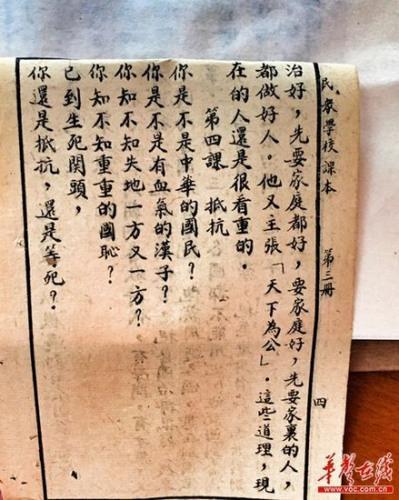 民衆學校課本　第三册　四
治好，先要家庭都好，要家庭好，先要家裏的人，
都做好人。他又主張「天下為公」。這些道理，現
在的人還是很看重的。
第四課　抵抗
你是不是中華的國民？
你是不是有血氣的漢子？
你知不知失地一方又一方？
你知不知重重的國恥？
已到生死関頭，
你還是抵抗，還是等死？
華聲在线
www.voc.com.cn